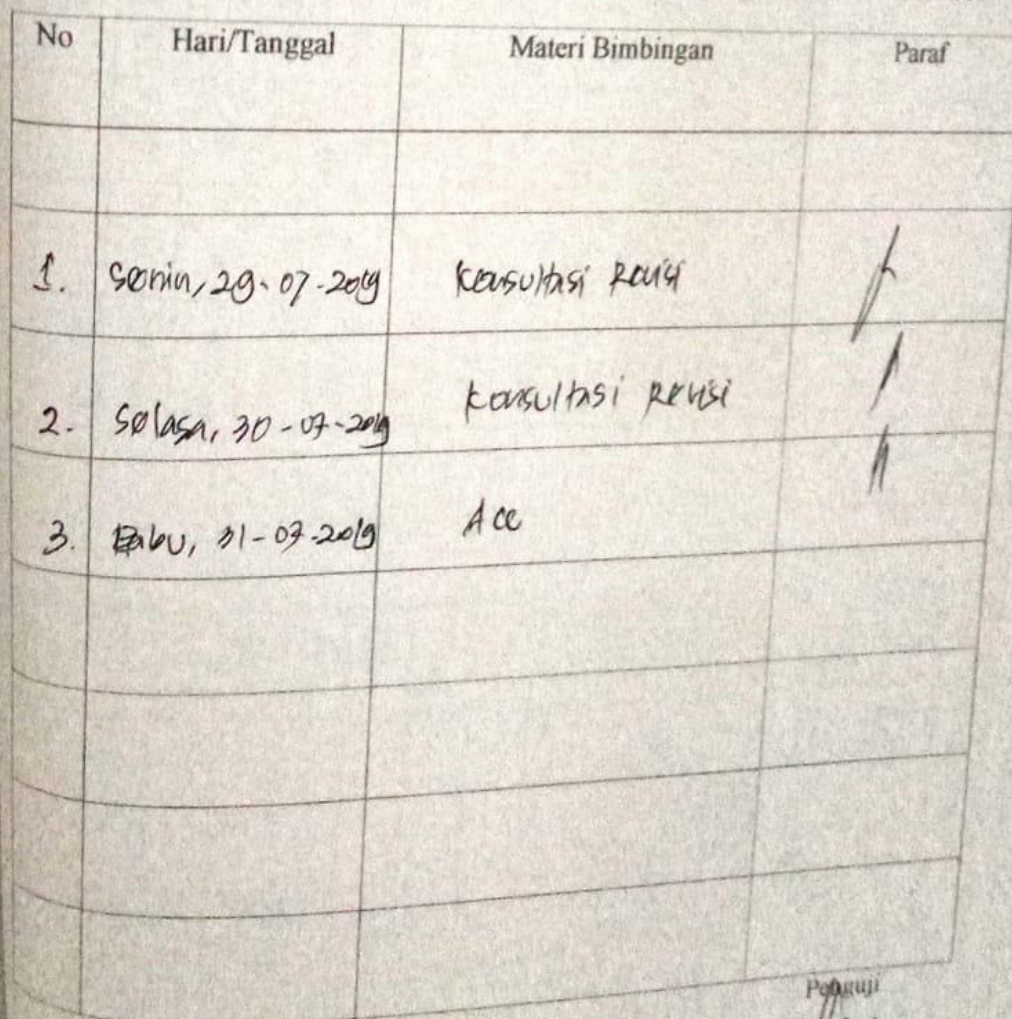 No Hari/Tanggal Materi Bimbingan Paraf
1. Senin, 29-07-2019 Konsultasi Revisi
2. Selasa, 30-07-2019 Konsultasi Revisi
3. Rabu, 31-07-2019 Acc
Penguji